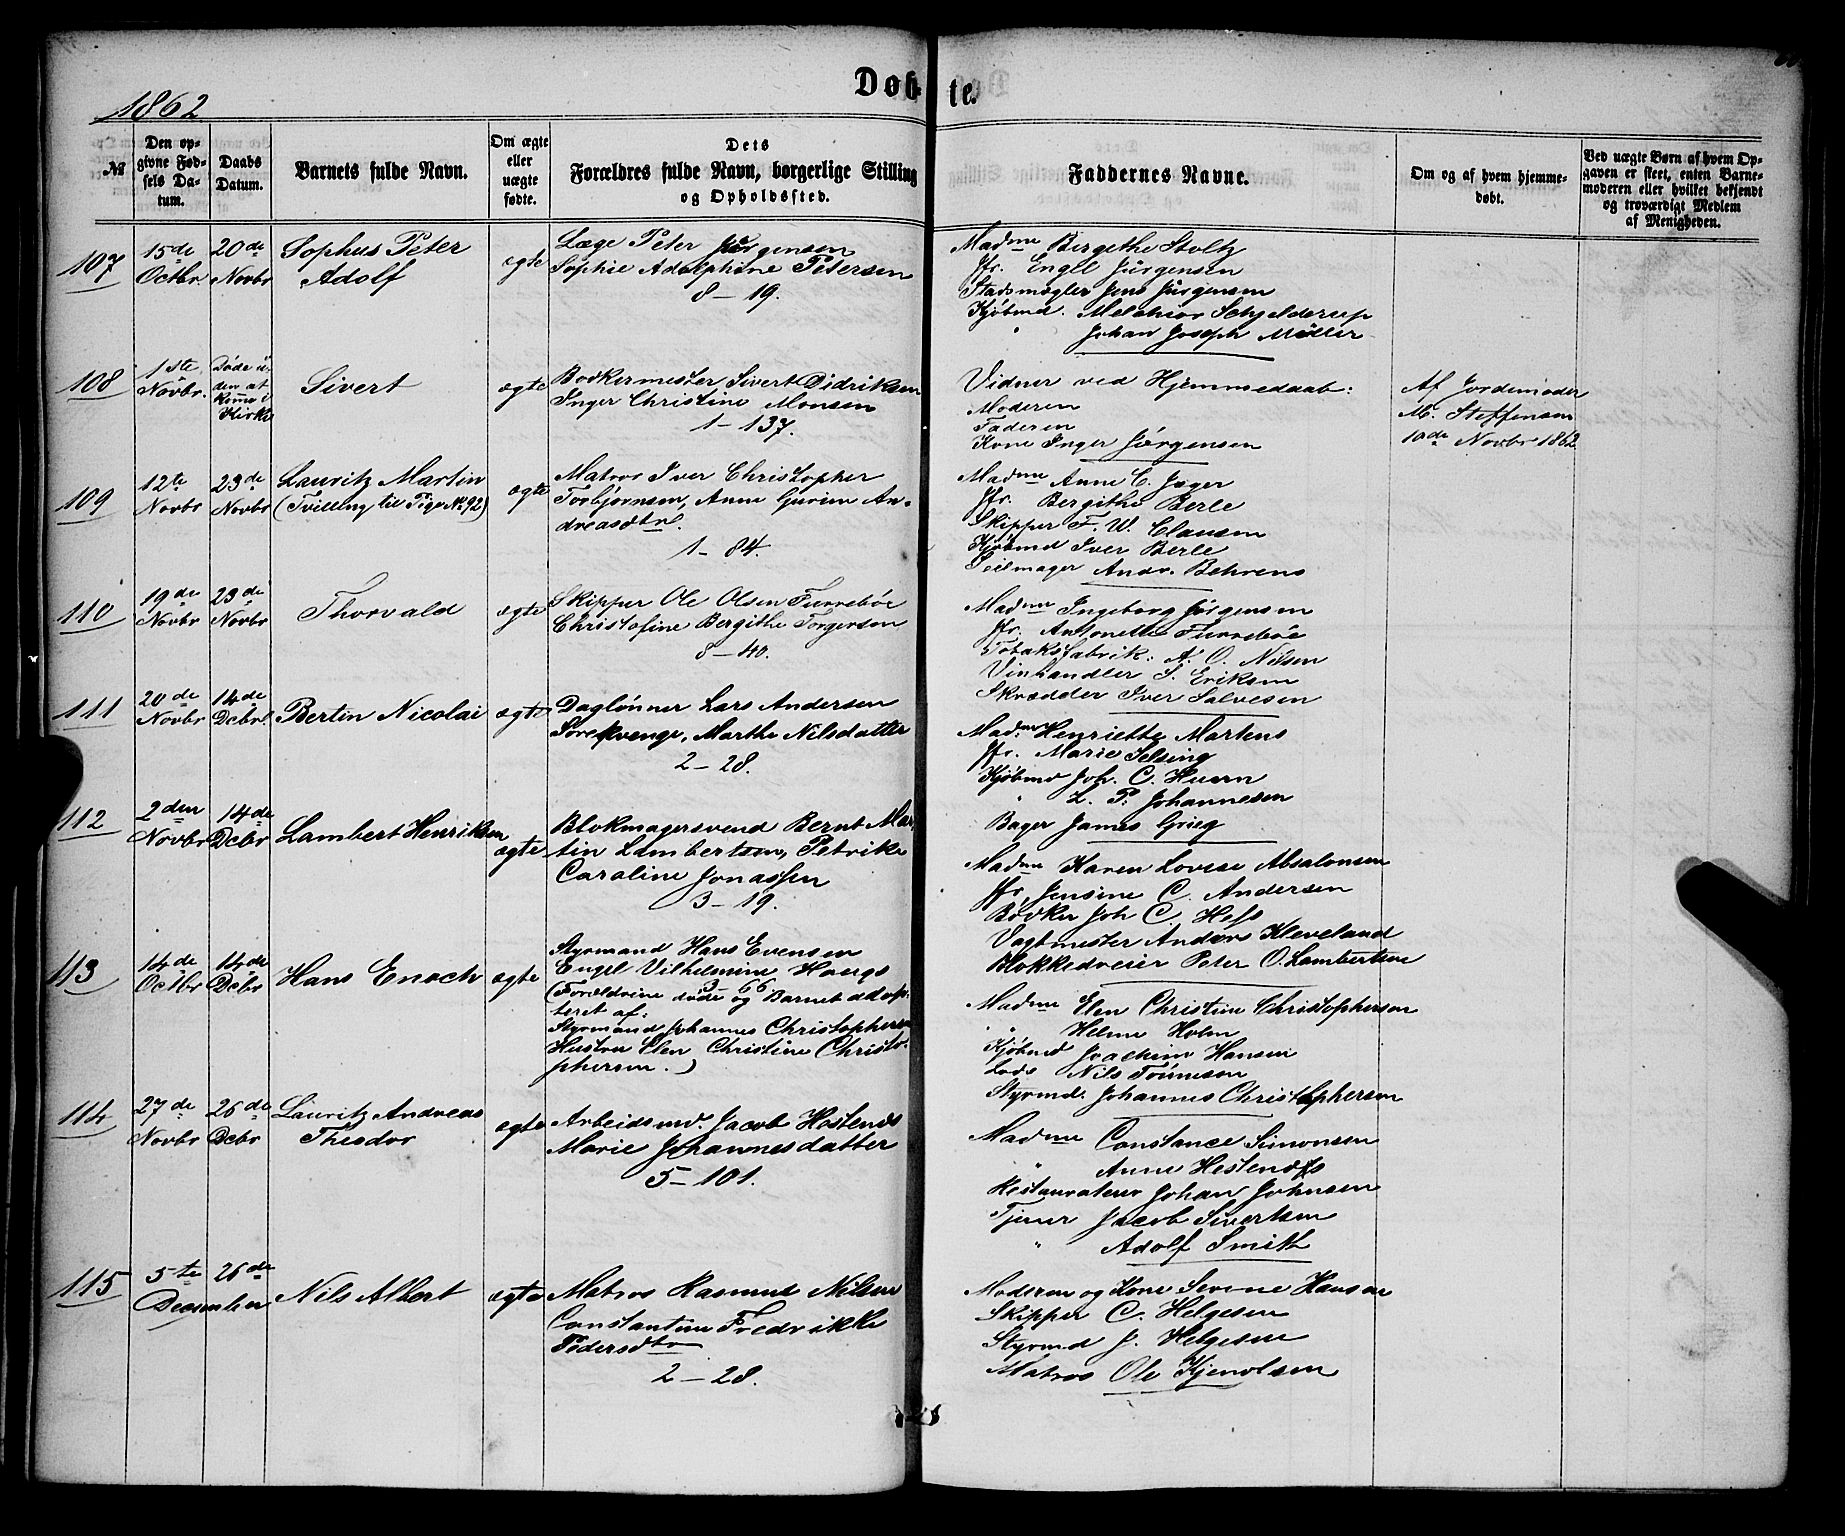 Døbte.
1862
№
Den opgivne Fødsels Datum.
Daabs Datum.
Barnets fulde Navn.
Om ægte eller uægte fødte.
Dets Forældres fulde Navn, borgerlige Stilling og Opholdssted.
Faddernes Navne.
Om og af hvem hjemmedøbt.
Ved uægte Børn af hvem Opgaven er skeet, enten Barnemoderen eller hvilket bekjendt og troværdigt Medlem af Menigheden.
107
15de Octbr
20de Novbr
Sophus Peter
Adolf
ægte
Læge Peter Jürgensen
Sophie Adolphine Petersen
8 – 19.
Madme Bergithe Stoltz
Jfr. Engel Jürgensen
Stadsmægler Jens Jürgensen
Kjøbmd. Melchior Schjelderup
" Johan Joseph Møller
108
1ste Novbr.
Døde uden at komme i Kirke
Sivert
ægte
Bødkermester Sivert Didriksen
Inger Christine Monsen
1 – 137.
Vidner ved Hjemmedaab:
Moderen
Faderen
Kone Inger Jørgensen
Af Jordemoder
M. Steffensen
10de Novbr 1862
109
12te Novbr
23de Novbr
Lauritz Martin
(Tvilling til Pige No 92)
ægte
Matros Iver Christopher
Torbjørnsen, Anne Gurine An-
dreasdtr.
1 – 84.
Madme Anne C. Jæger
Jfr. Bergithe Berle
Skipper F. W. Clausen
Kjøbmd Iver Berle
Seilmager Andr. Behrens
110
19de Novbr
23de Novbr
Thorvald
ægte
Skipper Ole Olsen Furrebøe
Christofine Bergithe Torgersen
8 – 40.
Madme Ingeborg Jørgensen
Jfr. Antonette Furrebøe
Tobaksfabrik: A. O. Nilsen
Vinhandler S. Eriksen
Skrædder Iver Salvesen
111
20de Novbr
14de Dcbr.
Bertin Nicolai
ægte
Daglønner Lars Andersen
Storekvenge, Marthe Nilsdatter
2 – 28.
Madme Henriette Martens
Jfr. Marie Selsing
Kjøbmd Joh. C. Huun
" L. P. Johannesen
Bager James Grieg
112
2den Novbr
14de Dcbr
Lambert Henriksen
ægte
Blokmagersvend Bernt Mar-
tin Lambertsen, Petrike
Caroline Jonassen
3 – 19.
Madme Karen Lovise Absalonsen
Jfr. Jensine C. Andersen
Bødker Joh C. Hess
Vagtmester Anders Kleveland
Blokkedreier Peter O. Lambertsen
113
14de Octbr
14de Dcbr
Hans Enoch
ægte
Styrmand Hans Evensen
Engel Vilhelmine Haugs
3 – 66
(Forældrene døde og Barnet adop-
teret af:
Styrmand Johannes Christophersen
Hustru Elen Christine Christo-
phersen.)
Madme Elen Christine Christophersen
" Helene Holm
Kjøbmd Joachim Hansen
Lods Nils Tønnesen
Styrmd. Johannes Christophersen
114
27de Novbr
26de Dcbr
Lauritz Andreas
Theodor
ægte
Arbeidsmd. Jacob Hestenes
Marie Johannesdatter
5 – 101.
Madme Constance Simonsen
" Anne Hestenes
Restaurateur Johan Johnsen
Tjener Jacob Sivertsen
" Adolf Smith
115
5te 26de
December
Nils Albert
ægte
Matros Rasmus Nilsen
Constantine Fredrikke
Pedersdtr
2 – 28.
Moderen og Kone Serene Hansen
Skipper C. Helgesen
Styrmd J. Helgesen
Matros Ole Kjenolsen